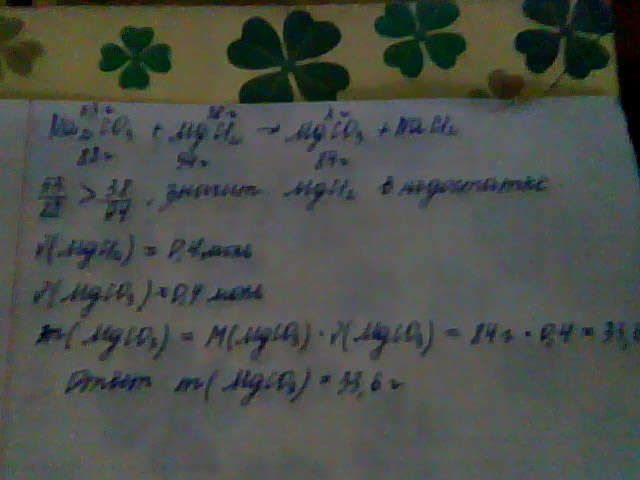 Na₂CO₃ + MgCl₂ → MgCO₃ + NaCl₂
84г
, значит MgCl₂ в недостатке
ν(MgCl₂) = 0,4 моль
ν(MgCO₃) = 0,4 моль
m(MgCO₃) = M(MgCO₃) · ν(MgCO₃) = 84г · 0,4 = 33,6
Ответ m(MgCO₃) = 33,6 г